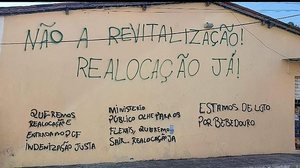 NÃO A REVITALIZAÇÃO!
REALOCAÇÃO JÁ!
QUEREMOS
REALOCAÇÃO E
ENTRADA NO PCF
INDENIZAÇÃO JUSTA
MINISTERIO
PÚBLICO OLHE PARA OS
FLEXAIS, QUEREMOS
SAIR. REALOCAÇÃO JA
ESTAMOS DE LUTO
POR BEBEDOURO